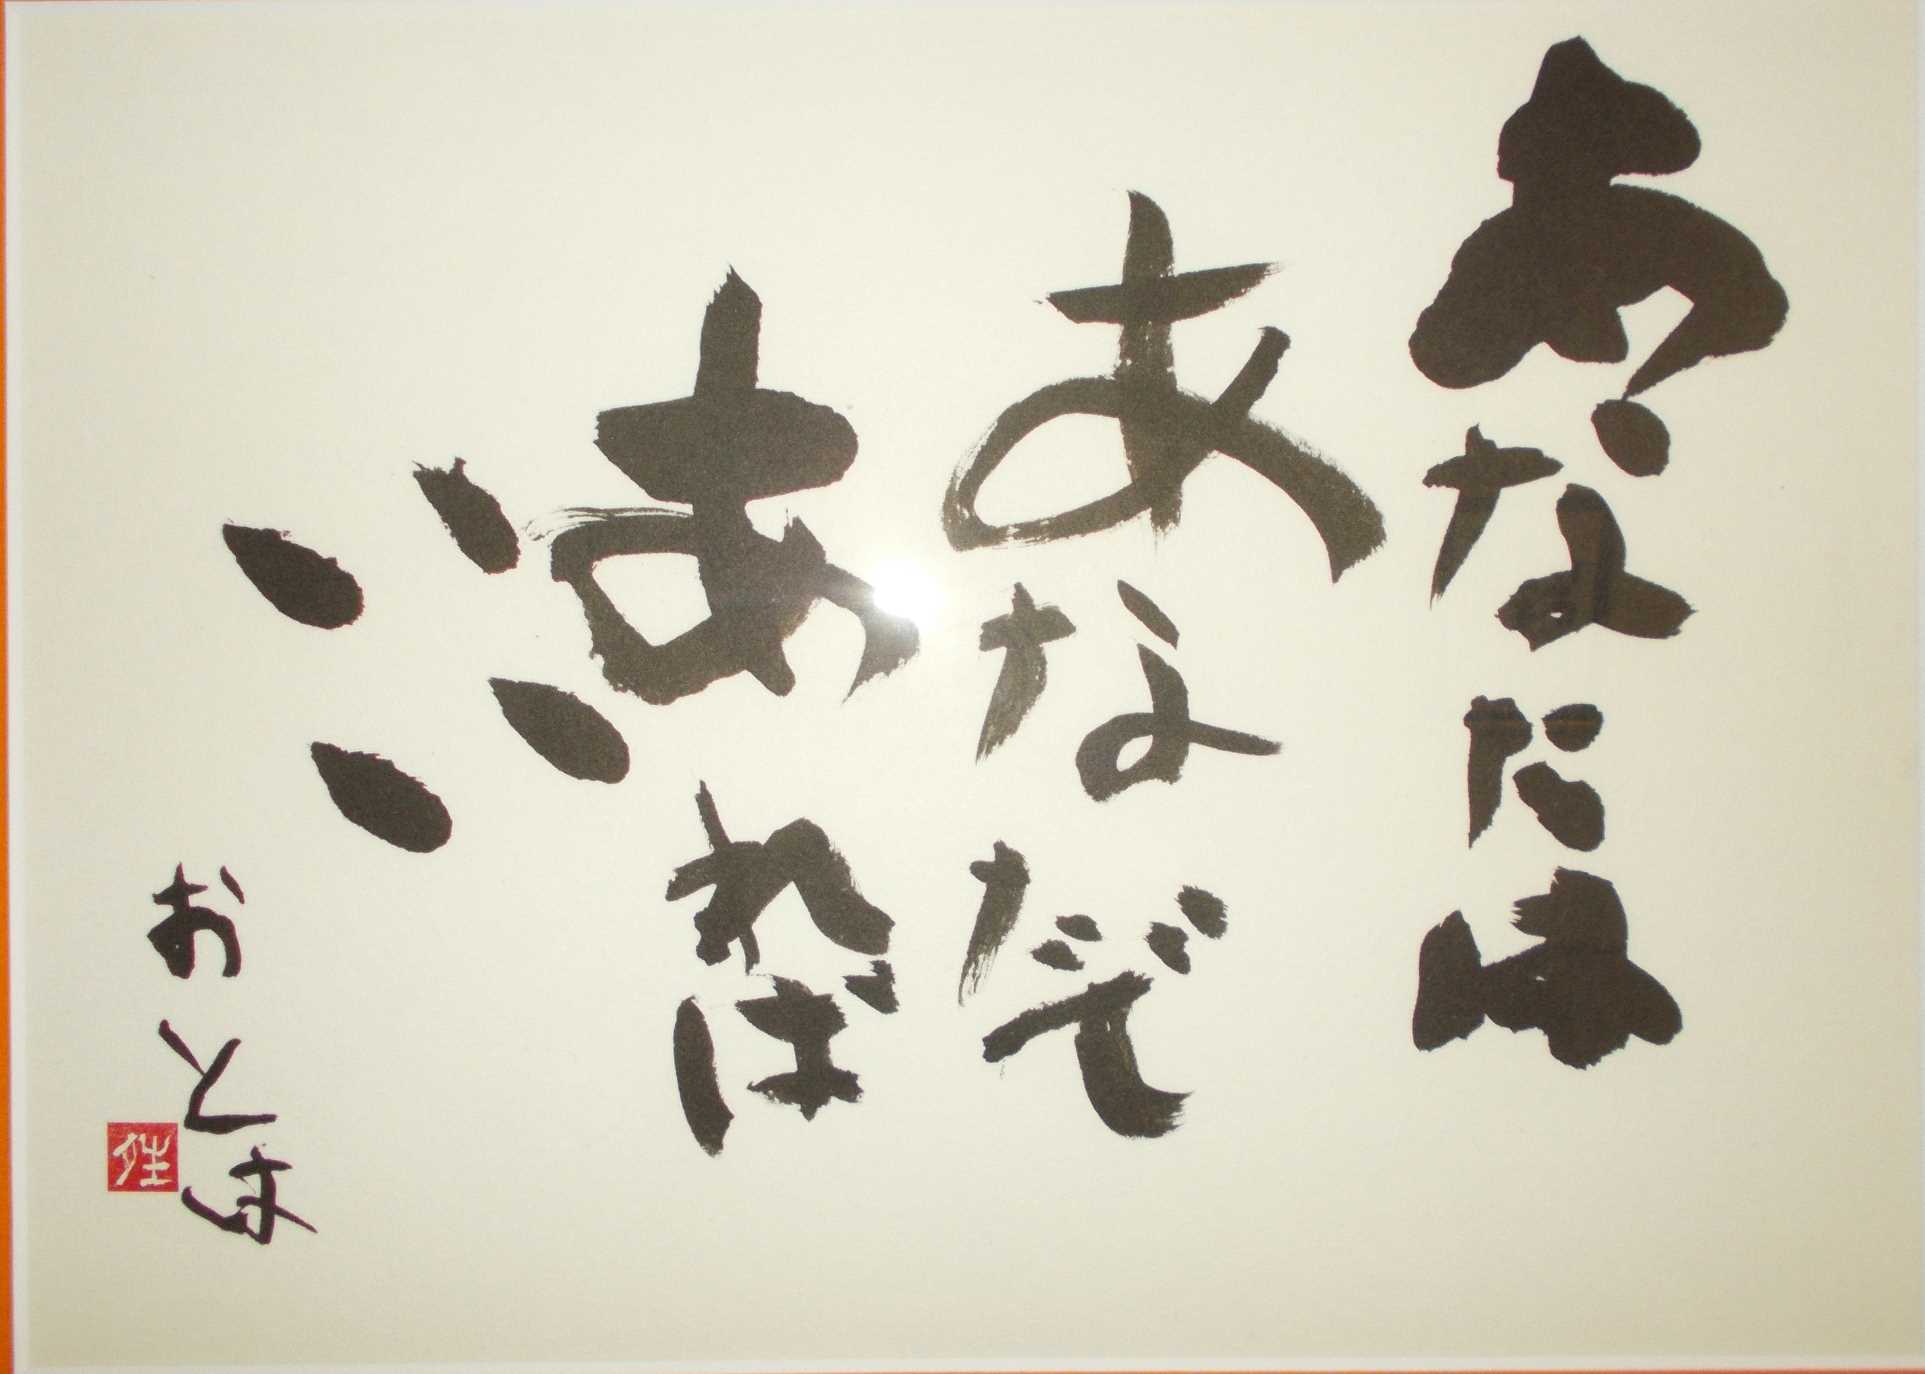 あなたは
あなたで
あれば
いい
おとは